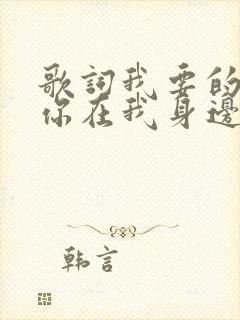 歌詞我要的
你在我身邊
韩言